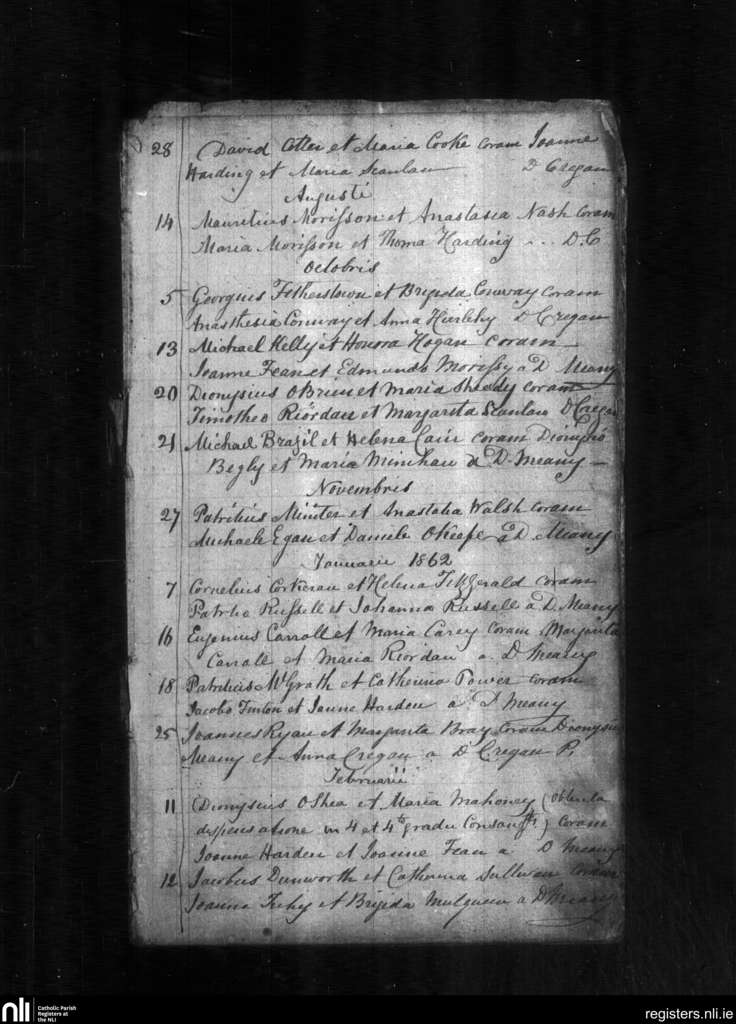 28 David Cotter et Maria Cooke coram Joanne
Harding et Maria Scanlan D Cregan
Augusti
14 Mauritius Morisson et Anastasia Nash coram
Maria Morisson et Thoma Harding ... D.C
Octobris
5 Georgius Fetherstown et Brigida Conway coram
Anasthesia Conway et Anna Hurlehy D Cregan
13 Michael Kelly et Honora Hogan coram
Joanne Fean et Edmundo Morissy a D Meany
20 Dionysius OBrien et Maria Sheedy coram
Timotheo Riordan et Margarita Scanlan D Cregan
21 Michael Brazil et Helena Cain coram Dionysio
Begly et Maria Minihan a D. Meany -
Novembris
27 Patritius Miniter et Anastatia Walsh coram
Michaele Egan et Daniele OKeefe a D. Meany
Januarii 1862
7 Cornelius Corkeran et Helena FitzGerald coram
Patrtio Russell et Johanna Russell a D. Meany
16 Eugenius Carroll et Maria Carey coram Margarita
Carroll et Maria Riordan a. D Meany
18 Patritius McGrath et Catherina Power coram
Jacobo Finton et Janne Harden a D Meany
25 Joannes Ryan et Margarita Bray coram Dionysio
Meany et Anna Cregan a D Cregan P.
Februarii
11 Dionysius OShea et Maria Mahoney (obtenta
dispensatione in 4 et 4to gradu Consangti) coram
Joanne Harden et Joanne Fean a D Meany
12 Jacobus Dunworth et Catherina Sullivan coram
Joanne Feehy et Brigida Mulqueen a D Meany
nli Catholic Parish
Registers at
the NLI
registers.nli.ie